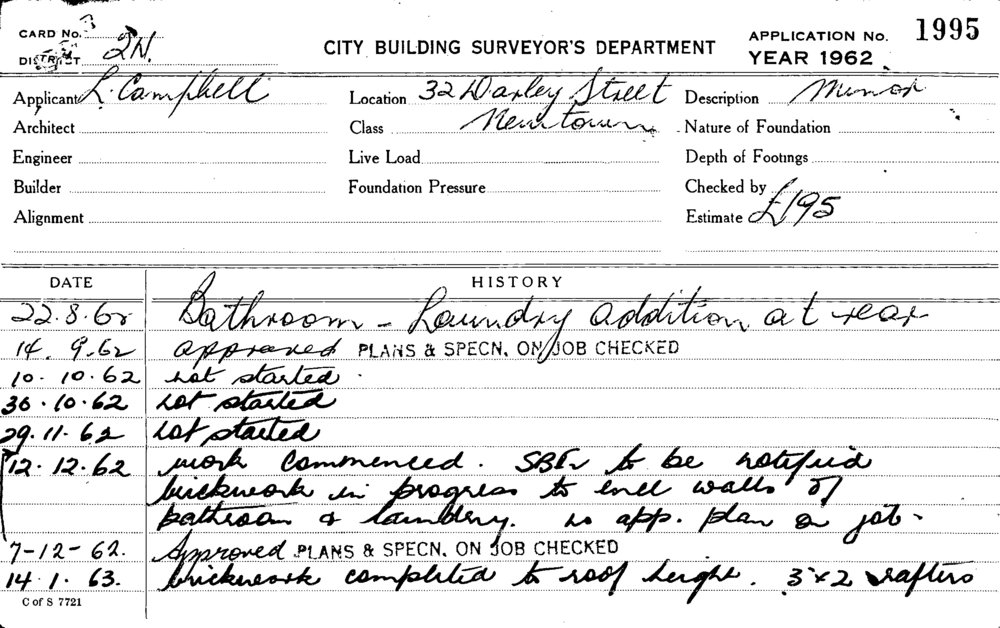 CARD No. 3
DISTRICT 2N.
CITY BUILDING SURVEYOR'S DEPARTMENT
APPLICATION No. 1995
YEAR 1962
Applicant L. Campbell Location 32 Darley Street Description Minor
Architect Class Newtown Nature of Foundation
Engineer Live Load Depth of Footings
Builder Foundation Pressure Checked by
Alignment Estimate £195
DATE HISTORY
22.8.62 Bathroom - Laundry addition at rear
14. 9.62 approved PLANS & SPECN. ON JOB CHECKED
10. 10. 62 not started.
30. 10. 62 not started
29. 11. 62 not started
12. 12. 62 work commenced. to be notified
brickwork in progress to encl walls of
bathroom & laundery. no app. plan on job.
7-12-62. Approved PLANS & SPECN. ON JOB CHECKED
14. 1. 63. brickwork completed to roof height. 3"x2 rafters
C of S 7721